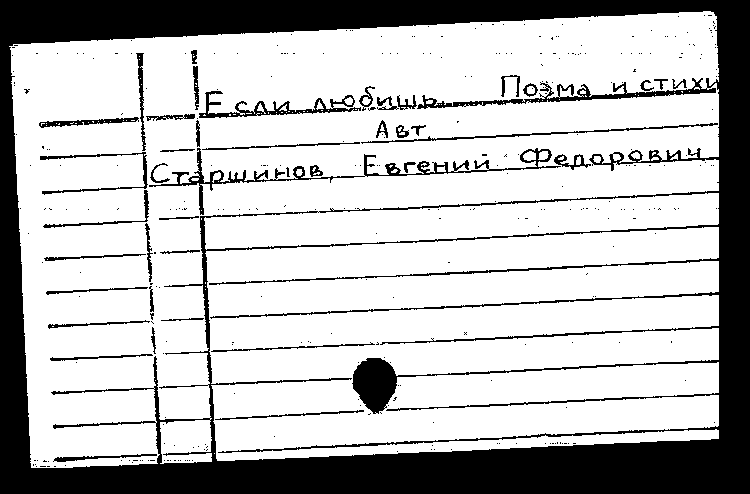 Если любишь. Поэма и стихи
Авт.
Старшинов, Евгений Федорович